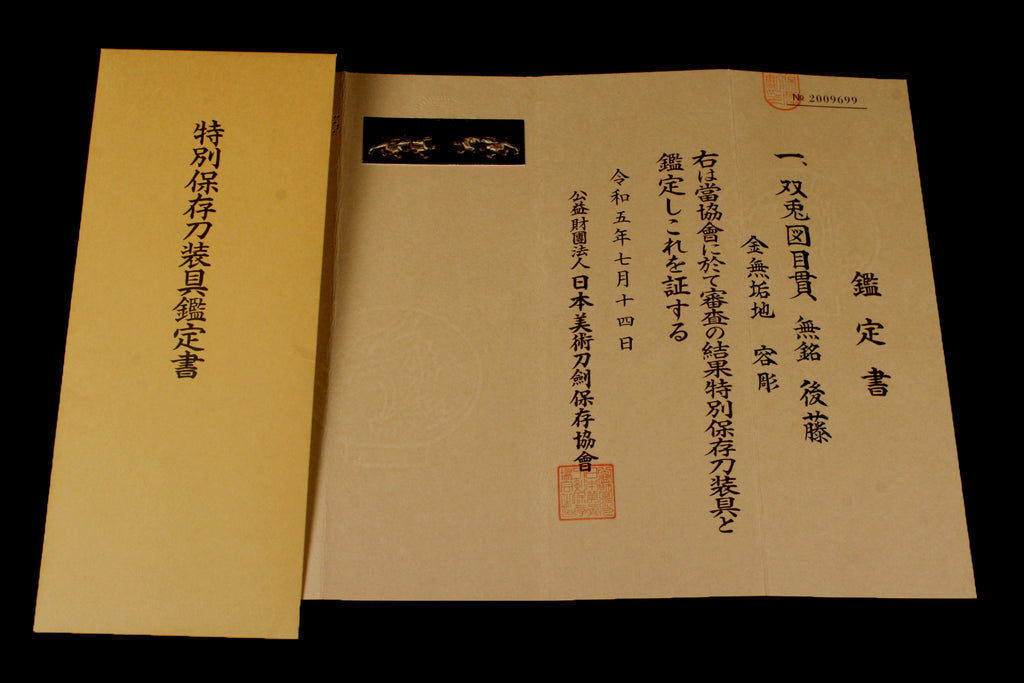 特別保存刀装具鑑定書
№ 2009699
鑑定書
一、双兎図目貫、無銘 後藤
金無垢地 容彫
右は當協會に於て審査の結果特別保存刀装具と
鑑定しこれを証する
令和五年七月十四日
公益財團法人 日本美術刀劍保存協會